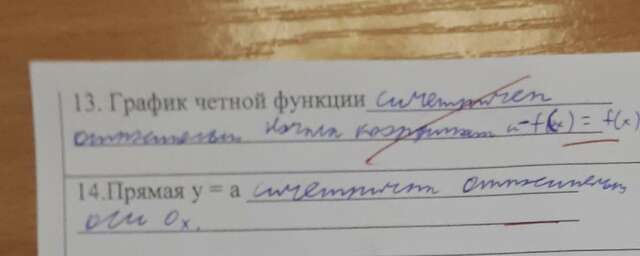 13. График четной функции симметричен
относительно начала координат и -f(x) = f(x)
14.Прямая y = a симметричен относительно
оси Ox.